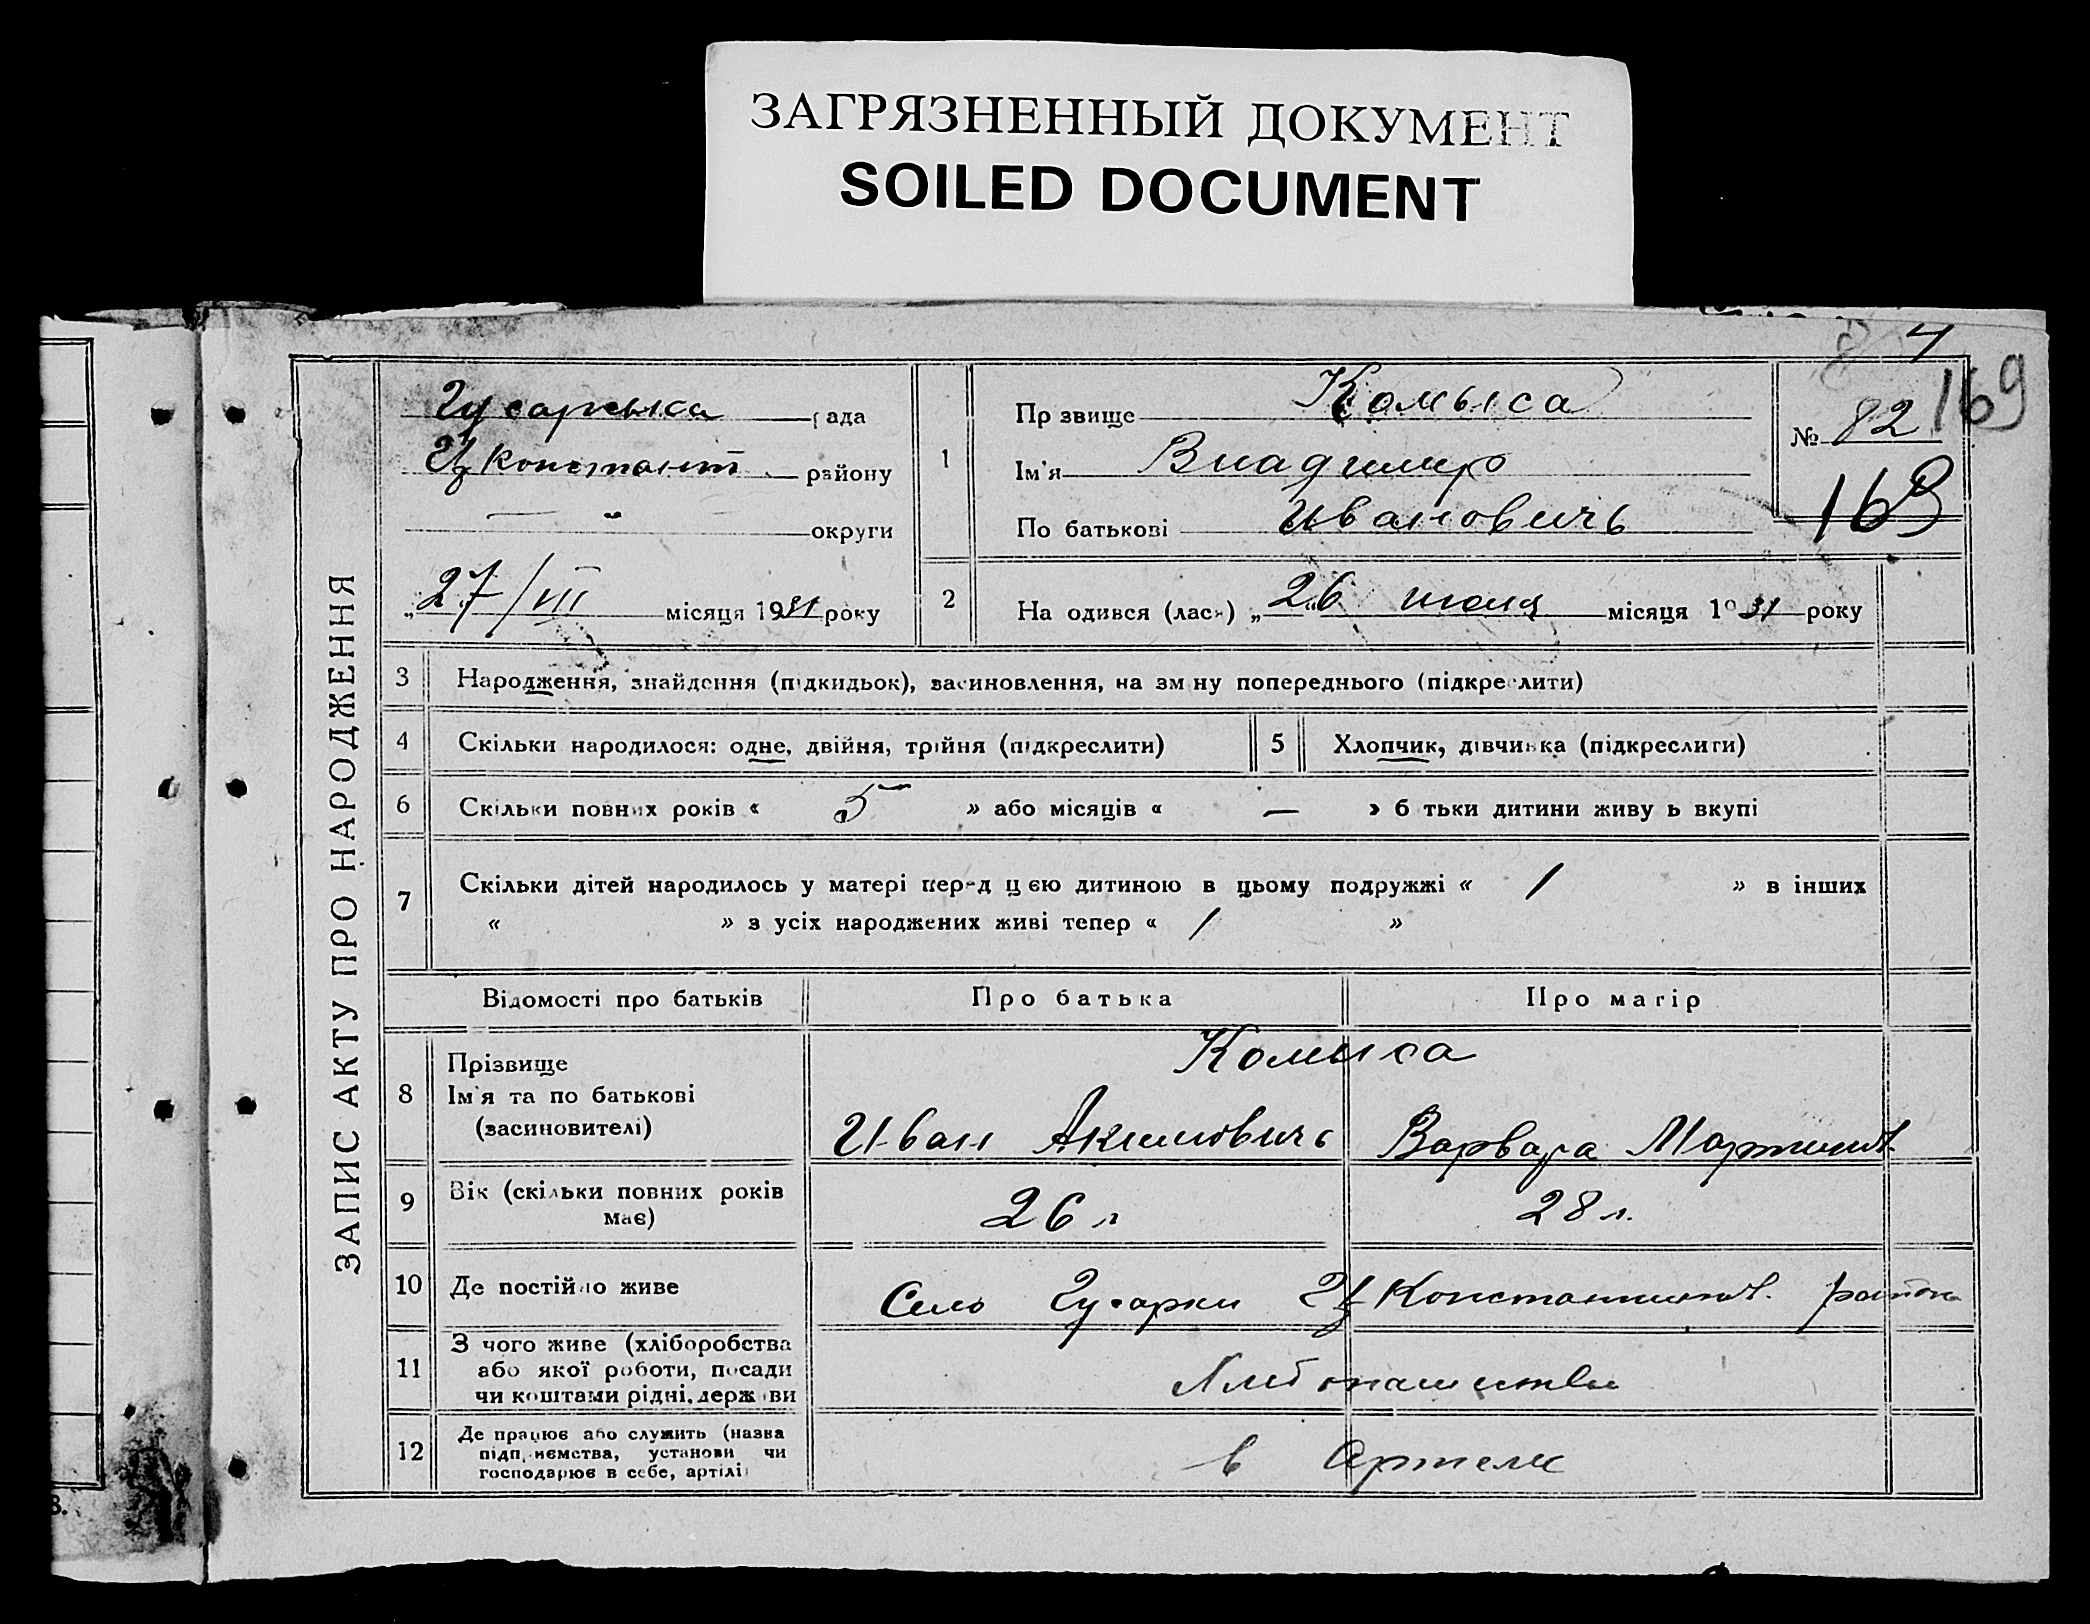 ЗАГРЯЗНЕННЫЙ ДОКУМЕНТ
SOILED DOCUMENT
ЗАПИС АКТУ ПРО НАРОДЖЕННЯ
рада
району
округи
„27/III місяця 1931 року
1
Пр звище Комыса
Ім'я Владимир
По батькові Ивановичъ
№ 82
169
169
2 На одився (лася) „26 июля місяця 1931 року
3 Народження, знайдення (підкидьок), засиновлення, на зміну попереднього (підкреслити)
4 Скільки народилося: одне, двійня, трійня (підкреслити)
5 Хлопчик, дівчинка (підкреслити)
6 Скільки повних років « 5 » або місяців « — » б тьки дитини живу ь вкупі
7 Скільки дітей народилось у матері перед цією дитиною в цьому подружжі « 1 » в інших
« » з усіх народжених живі тепер « 1 »
Відомості про батьків Про батька Про матір
8 Прізвище
Ім'я та по батькові
(засиновителі)
Комыса
Иван Акимовичъ Варвара
9 Вік (скільки повних років
має)
26 л 28 л.
10 Де постійно живе Село Гусарки районa
11 З чого живе (хліборобства
або якої роботи, посади
чи коштами рідні, держави
12 Де працює або служить (назва
підприємства, установи чи
господарює в себе, артілі)
в Артели